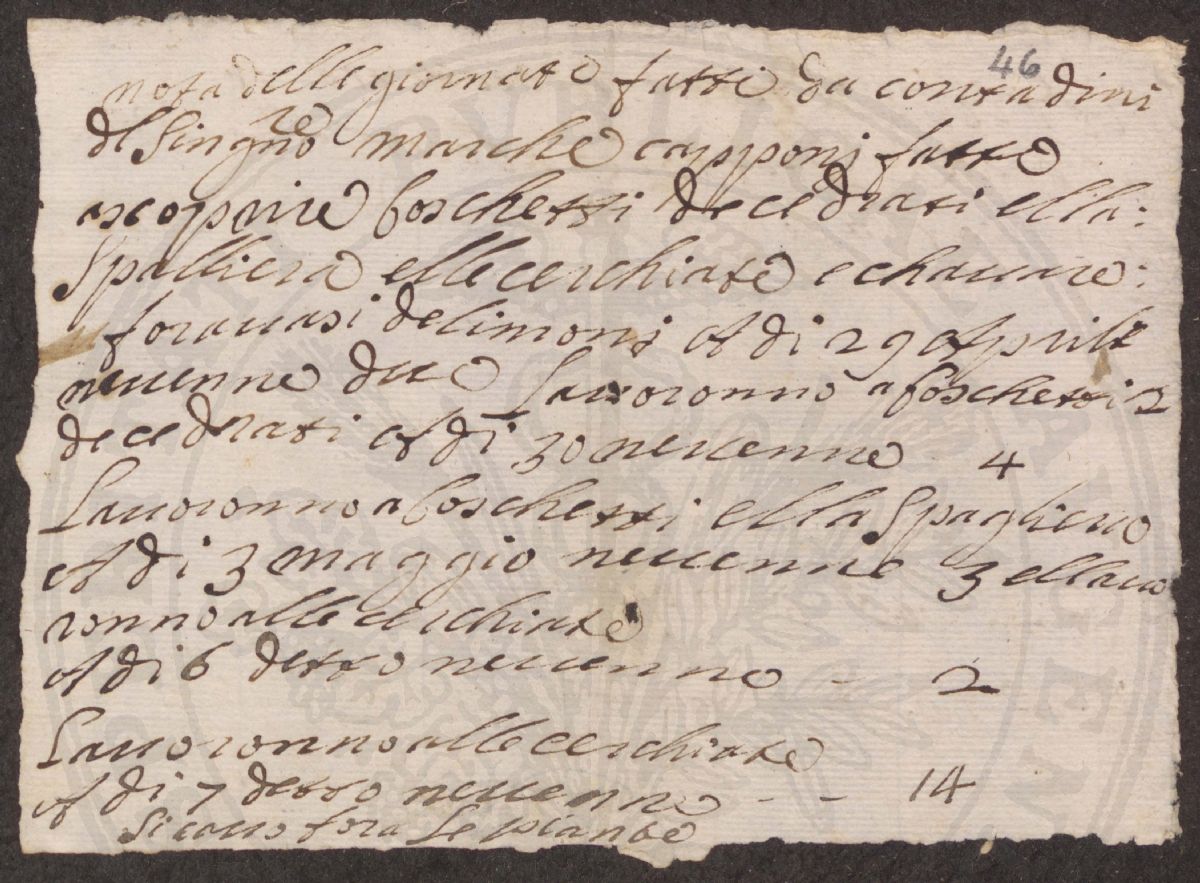 46
nota delle giornate fatte da contadini
del Singre marche capponi fatte
ascoprire boschetti de cedrati ella:
Spalliera elle cerchiate echauare:
fora uasi de limoni A di 29 Aprile
neuenne due Lauoronno a boschetti 2
de cedrati A di 30 neuenne - 4
Lauoronno a boschetti ella Spagliera
A di 3 maggio neuenne 3 ellauo
ronno alle cerchiate
A di 6 detto neuenno - 2
Lauoronno alle cerchiate
A di 7 detto neuenne - - 14
Si cauo fora le piante